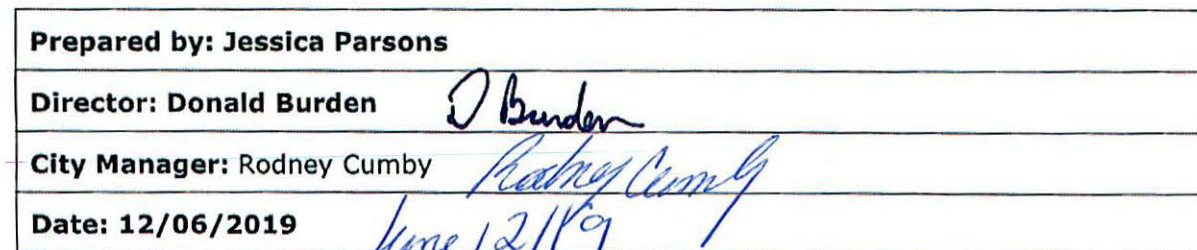 Prepared by: Jessica Parsons
Director: Donald Burden D Burden
City Manager: Rodney Cumby Rodney Cumby
Date: 12/06/2019 June 12/19